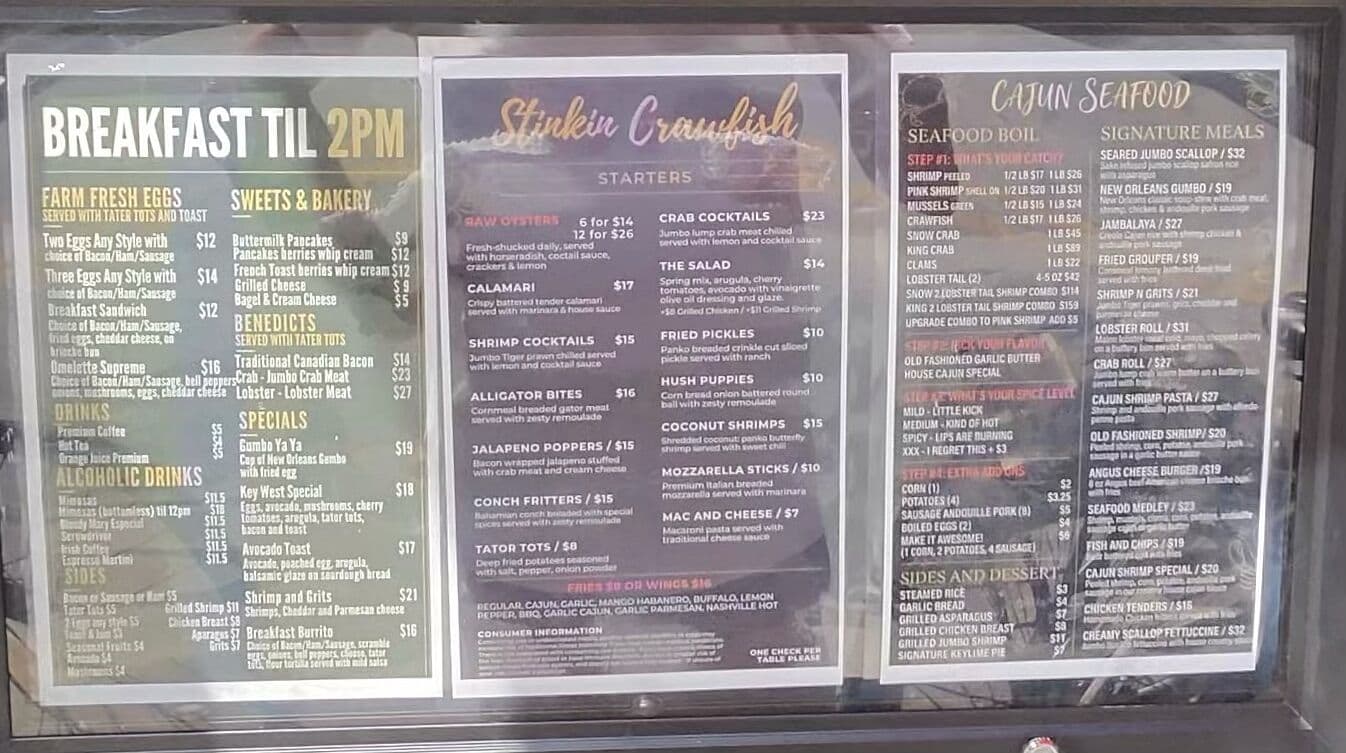 BREAKFAST TIL 2PM
FARM FRESH EGGS
SERVED WITH TATER TOTS AND TOAST
Two Eggs Any Style with $12
choice of Bacon/Ham/Sausage
Three Eggs Any Style with $14
choice of Bacon/Ham/Sausage
Breakfast Sandwich $12
Choice of Bacon/Ham/Sausage,
fried eggs, cheddar cheese, on
brioche bun
Omelette Supreme $16
Choice of Bacon/Ham/Sausage, bell peppers
onions, mushrooms, eggs, cheddar cheese
DRINKS
Premium Coffee $5
Hot Tea
Orange Juice Premium
ALCOHOLIC DRINKS
Mimosas $11.5
Mimosas (bottomless) til 12pm $18
Bloody Mary Especial $11.5
Screwdriver $11.5
Irish Coffee $11.5
Espresso Martini $11.5
SIDES
Bacon or Sausage or Ham $5
Tater Tots $5
2 Eggs any style $5
Toast & Jam $3
Seasonal Fruits $4
Avocado $4
Mushrooms $4
Grilled Shrimp $11
Chicken Breast $8
Aparagus $7
Grits $7
SWEETS & BAKERY
Buttermilk Pancakes $9
Pancakes berries whip cream $12
French Toast berries whip cream $12
Grilled Cheese $9
Bagel & Cream Cheese $5
BENEDICTS
SERVED WITH TATER TOTS
Traditional Canadian Bacon $14
Crab - Jumbo Crab Meat $23
Lobster - Lobster Meat $27
SPECIALS
Gumbo Ya Ya $19
Cup of New Orleans Gumbo
with fried egg
Key West Special $18
Eggs, avocado, mushrooms, cherry
tomatoes, arugula, tater tots,
bacon and toast
Avocado Toast $17
Avocado, poached egg, arugula,
balsamic glaze on sourdough bread
Shrimp and Grits $21
Shrimps, Cheddar and Parmesan cheese
Breakfast Burrito $16
Choice of Bacon/Ham/Sausage, scramble
eggs, onions, bell peppers, cheese, tater
tots, flour tortilla served with mild salsa
Stinkin Crawfish
STARTERS
RAW OYSTERS 6 for $14
12 for $26
Fresh-shucked daily, served
with horseradish, coctail sauce,
crackers & lemon
CALAMARI $17
Crispy battered tender calamari
served with marinara & house sauce
SHRIMP COCKTAILS $15
Jumbo Tiger prawn chilled served
with lemon and cocktail sauce
ALLIGATOR BITES $16
Cornmeal breaded gator meat
served with zesty remoulade
JALAPENO POPPERS / $15
Bacon wrapped jalapeno stuffed
with crab meat and cream cheese
CONCH FRITTERS / $15
Bahamian conch breaded with special
spices served with zesty remoulade
TATOR TOTS / $8
Deep fried potatoes seasoned
with salt, pepper, onion powder
CRAB COCKTAILS $23
Jumbo lump crab meat chilled
served with lemon and cocktail sauce
THE SALAD $14
Spring mix, arugula, cherry
tomatoes, avocado with vinaigrette
olive oil dressing and glaze.
+$8 Grilled Chicken / +$11 Grilled Shrimp
FRIED PICKLES $10
Panko breaded crinkle cut sliced
pickle served with ranch
HUSH PUPPIES $10
Corn bread onion battered round
ball with zesty remoulade
COCONUT SHRIMPS $15
Shredded coconut panko butterfly
shrimp served with sweet chili
MOZZARELLA STICKS / $10
Premium Italian breaded
mozzarella served with marinara
MAC AND CHEESE / $7
Macaroni pasta served with
traditional cheese sauce
FRIES $8 OR WINGS $16
REGULAR, CAJUN, GARLIC, MANGO HABANERO, BUFFALO, LEMON
PEPPER, BBQ, GARLIC CAJUN, GARLIC PARMESAN, NASHVILLE HOT
CONSUMER INFORMATION
ONE CHECK PER
TABLE PLEASE
CAJUN SEAFOOD
SEAFOOD BOIL
STEP #1: WHAT'S YOUR CATCH?
SHRIMP PEELED 1/2 LB $17 1 LB $26
PINK SHRIMP SHELL ON 1/2 LB $20 1 LB $31
MUSSELS GREEN 1/2 LB $15 1 LB $24
CRAWFISH 1/2 LB $17 1 LB $26
SNOW CRAB 1 LB $45
KING CRAB 1 LB $89
CLAMS 1 LB $22
LOBSTER TAIL (2) 4-5 OZ $42
SNOW 2 LOBSTER TAIL SHRIMP COMBO $114
KING 2 LOBSTER TAIL SHRIMP COMBO $159
UPGRADE COMBO TO PINK SHRIMP ADD $5
STEP #2: PICK YOUR FLAVOR
OLD FASHIONED GARLIC BUTTER
HOUSE CAJUN SPECIAL
STEP #3: WHAT'S YOUR SPICE LEVEL
MILD - LITTLE KICK
MEDIUM - KIND OF HOT
SPICY - LIPS ARE BURNING
XXX - I REGRET THIS + $3
STEP #4: EXTRA ADD ONS
CORN (1) $2
POTATOES (4) $3.25
SAUSAGE ANDOUILLE PORK (8) $5
BOILED EGGS (2) $4
MAKE IT AWESOME! $6
(1 CORN, 2 POTATOES, 4 SAUSAGE)
SIDES AND DESSERT
STEAMED RICE $3
GARLIC BREAD $4
GRILLED ASPARAGUS $7
GRILLED CHICKEN BREAST $8
GRILLED JUMBO SHRIMP $11
SIGNATURE KEYLIME PIE $7
SIGNATURE MEALS
SEARED JUMBO SCALLOP / $32
Sake infused jumbo scallop saffron rice
with asparagus
NEW ORLEANS GUMBO / $19
New Orleans classic soup-stew with crab meat,
shrimp, chicken & andouille pork sausage
JAMBALAYA / $27
Creole Cajun rice with shrimp chicken &
andouille pork sausage
FRIED GROUPER / $19
served with fries
SHRIMP N GRITS / $21
Jumbo Tiger prawns, grits, cheddar and
parmesan cheese
LOBSTER ROLL / $31
Maine lobster meat cold, mayo, chopped celery
on a buttery bun served with fries
CRAB ROLL / $27
Jumbo lump crab warm butter on a buttery bun
served with fries
CAJUN SHRIMP PASTA / $27
Shrimp and andouille pork sausage with alfredo
penne pasta
OLD FASHIONED SHRIMP/ $20
Peeled shrimp, corn, potatoe, andouille pork
sausage in a garlic butter sauce
ANGUS CHEESE BURGER /$19
8 oz Angus beef American cheese brioche bun
with fries
SEAFOOD MEDLEY / $23
FISH AND CHIPS / $19
CAJUN SHRIMP SPECIAL / $20
Peeled shrimp, corn, potatoe, andouille pork
sausage in our creamy house cajun sauce
CHICKEN TENDERS / $16
CREAMY SCALLOP FETTUCCINE / $32